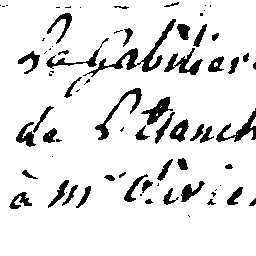 La Gabilier
de l'Etanch
à mr olivie